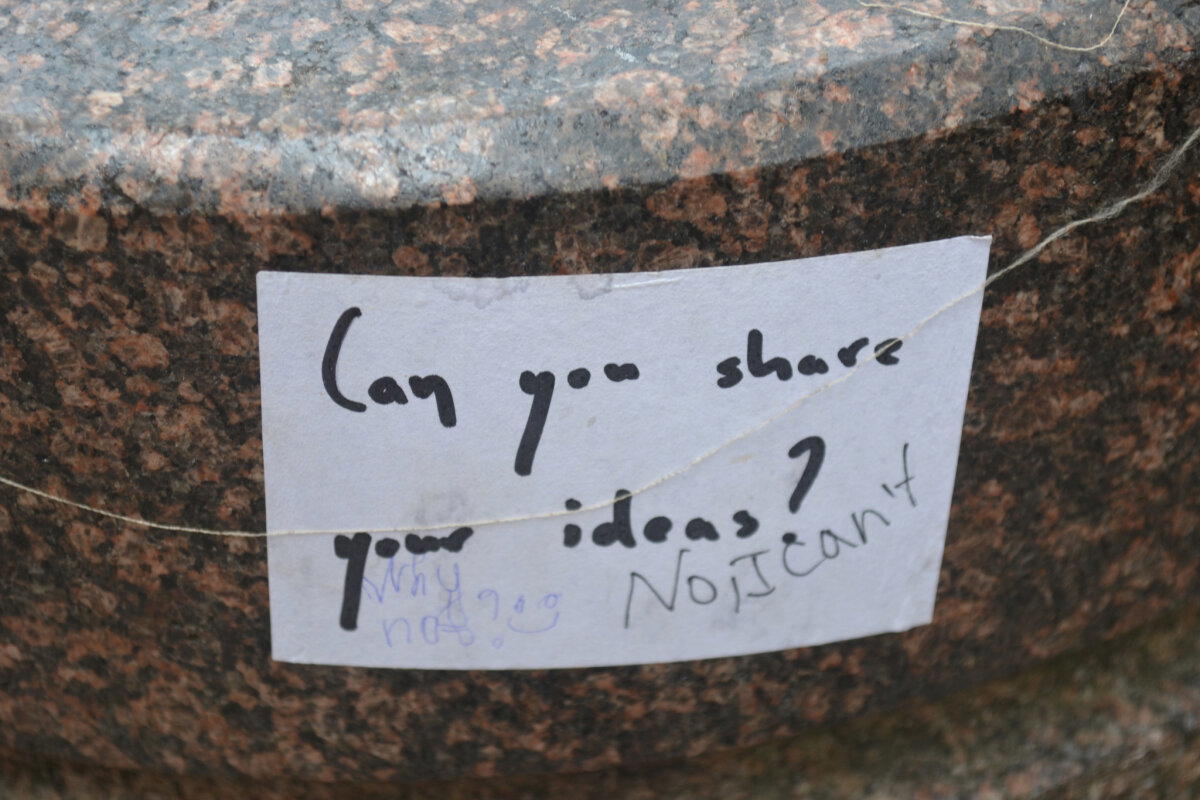 Can you share
your ideas?
No, I can't
Why
not? :)